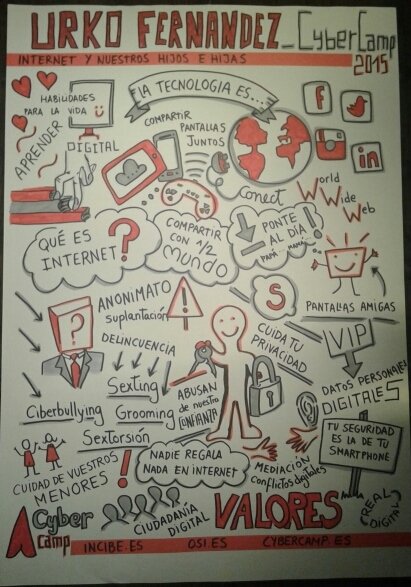 URKO FERNANDEZ_CyberCamp
2015
INTERNET Y NUESTROS HIJOS E HIJAS
HABILIDADES
PARA LA VIDA
APRENDER
DIGITAL
LA TECNOLOGIA ES...
COMPARTIR
PANTALLAS
JUNTOS
f
in
Conect
World
Wide
Web
QUÉ ES
INTERNET?
COMPARTIR
CON 1/2
MUNDO
PONTE
AL DÍA!
PAPÁ MAMÁ
PANTALLAS AMIGAS
ANONIMATO
suplantación
!
?
S
CUIDA TU
PRIVACIDAD
VIP
DELINCUENCIA
Sexting
Ciberbullying
Grooming
Sextorsión
ABUSAN
de nuestra
CONFIANZA
DATOS PERSONALES
DIGITALES
TU SEGURIDAD
ES LA DE TU
SMARTPHONE
CUIDAD DE VUESTROS
MENORES!
NADIE REGALA
NADA EN INTERNET
MEDIACIÓN
conflictos digitales
CIUDADANÍA
DIGITAL
VALORES
REAL
DIGITAL
Cyber
Camp
INCIBE.ES OSI.ES CYBERCAMP.ES